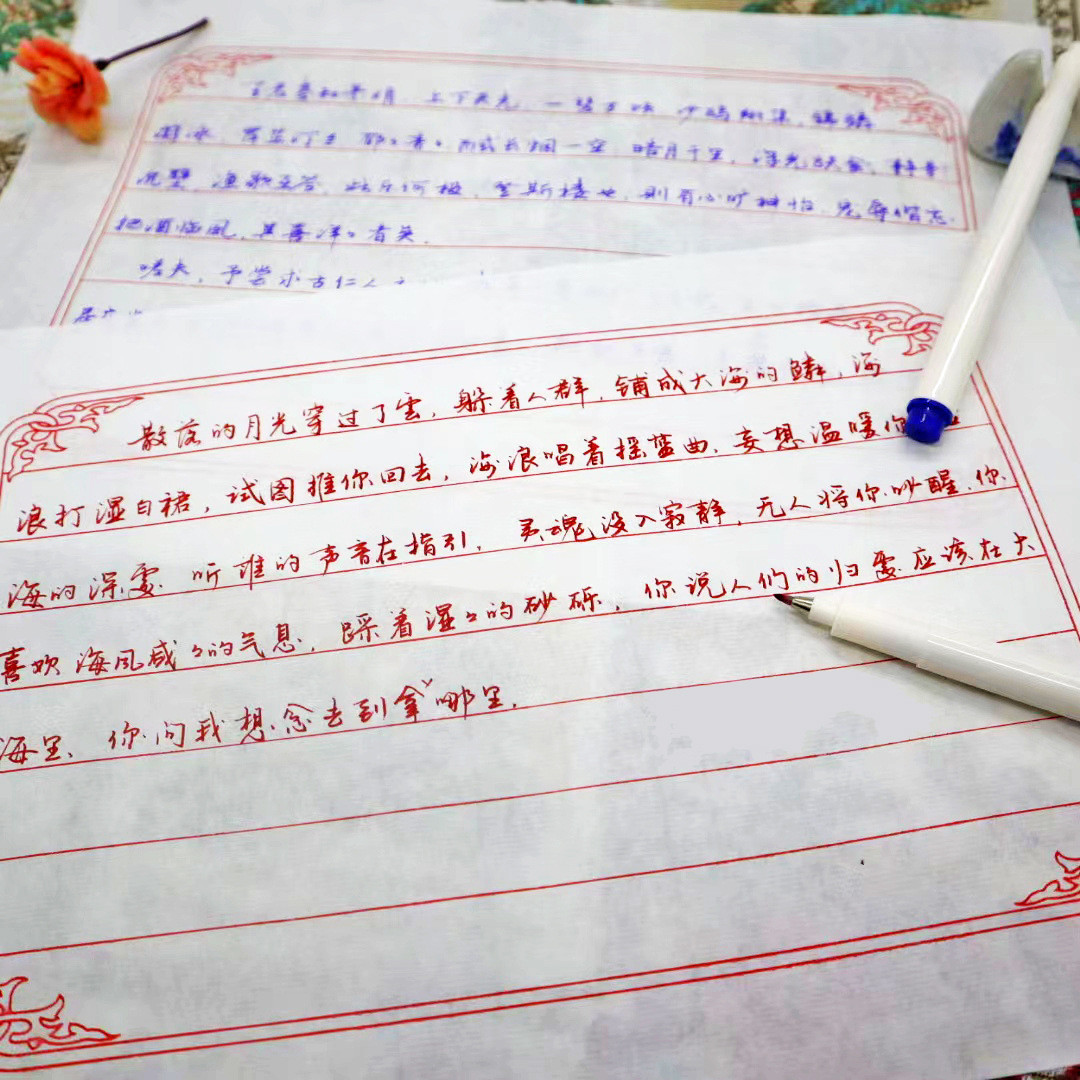 至若春和景明 上下天光,一碧万顷 沙鸥翔集,锦鳞
游泳,岸芷汀兰 郁々青々 而或长烟一空 皓月千里,浮光跃金,静影
沉璧 渔歌互答,此乐何极,登斯楼也,则有心旷神怡 宠辱偕忘,
把酒临风,其喜洋々者矣.
嗟夫,予尝求古仁人之
散落的月光穿过了雲,躲着人群,铺成大海的鳞,海
浪打湿白裙,试图推你回去,海浪唱着摇篮曲、妄想温暖你
海的深處.听谁的声音在指引,灵魂没入寂静,无人将你吵醒.你
喜欢海风咸々的气息,踩着湿々的砂砾,你说人们的归處应该在大
海里、你问我想念去到拿哪里.